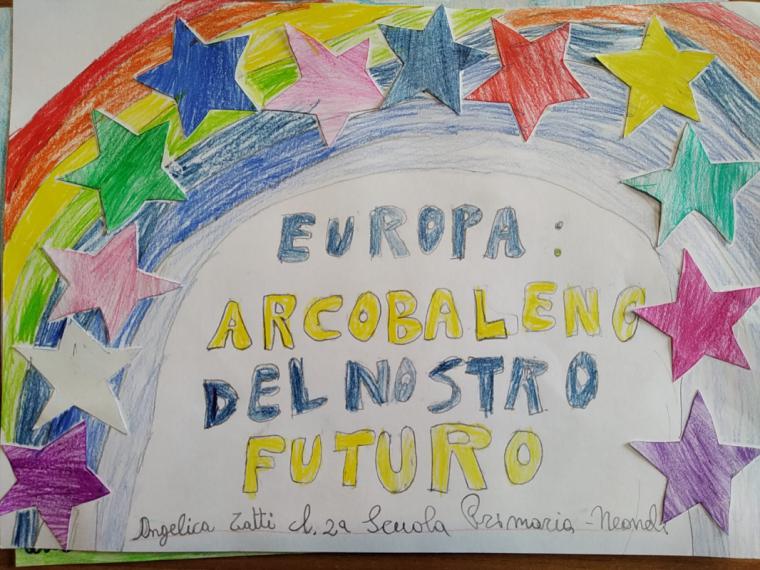 EUROPA:
ARCOBALENO
DEL NOSTRO
FUTURO
Angelica Zatti cl. 2a Scuola Primaria -